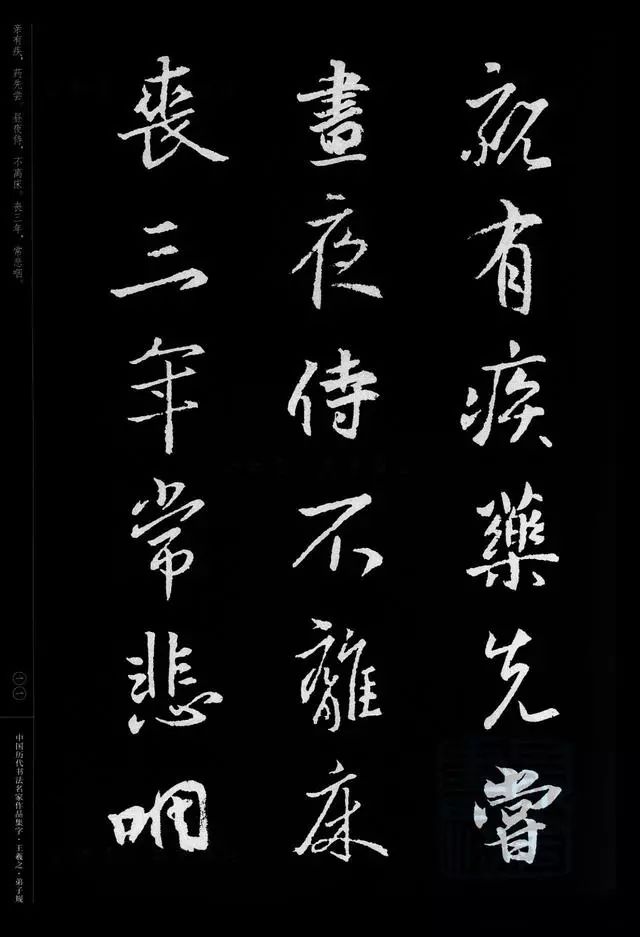 親有疾藥先嘗
晝夜侍不離床
喪三年常悲咽
亲有疾，药先尝。昼夜侍，不离床。丧三年，常悲咽。
二二
中国历代书法名家作品集字·王羲之·弟子规